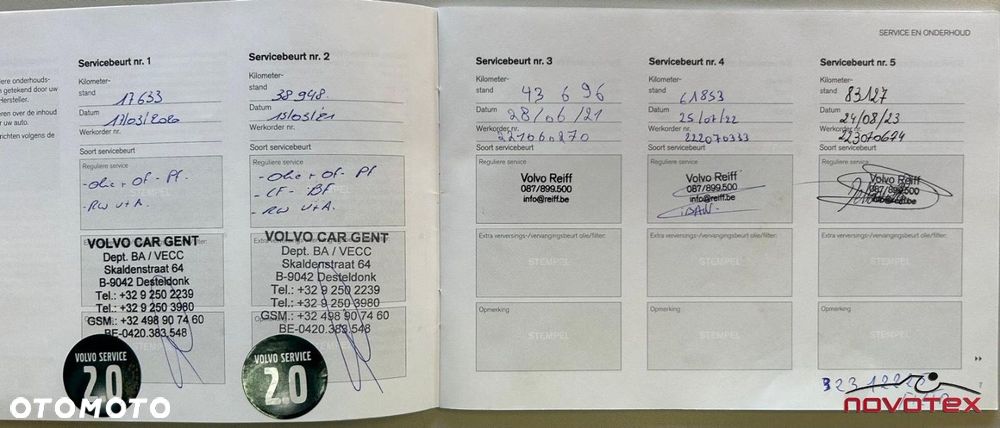 SERVICE EN ONDERHOUD
ere onderhouds-
en getekend door uw
Hersteller.
eren over de inhoud
uw auto.
richten volgens de
Servicebeurt nr. 1
Kilometer-
stand 17633
Datum 17/03/2020
Werkorder nr.
Soort servicebeurt
Reguliere service
- Olie + OF - PF
- RW V+A
Extra filter:
VOLVO CAR GENT
Dept. BA / VECC
Skaldenstraat 64
B-9042 Desteldonk
Tel.: +32 9 250 2239
Tel.: +32 9 250 3980
GSM.: +32 498 90 74 60
BE-0420.383.548
VOLVO SERVICE
2.0
Servicebeurt nr. 2
Kilometer-
stand 38948
Datum 15/03/21
Werkorder nr.
Soort servicebeurt
Reguliere service
- Olie + OF - PF
- CF - BF
- RW V+A.
VOLVO CAR GENT
Dept. BA / VECC
Skaldenstraat 64
B-9042 Desteldonk
Tel.: +32 9 250 2239
Tel.: +32 9 250 3980
GSM.: +32 498 90 74 60
BE-0420.383.548
VOLVO SERVICE
2.0
Servicebeurt nr. 3
Kilometer-
stand 43 696
Datum 28/06/21
Werkorder nr. 221060270
Soort servicebeurt
Reguliere service
Volvo Reiff
087/899.500
info@reiff.be
Extra verversings-/vervangingsbeurt olie/filter:
STEMPEL
Opmerking
STEMPEL
Servicebeurt nr. 4
Kilometer-
stand 61853
Datum 25/07/22
Werkorder nr. 222070333
Soort servicebeurt
Reguliere service
Volvo Reiff
087/899.500
info@reiff.be
Extra verversings-/vervangingsbeurt olie/filter:
STEMPEL
Opmerking
STEMPEL
Servicebeurt nr. 5
Kilometer-
stand 83127
Datum 24/08/23
Werkorder nr. 223070674
Soort servicebeurt
Reguliere service
Volvo Reiff
087/899.500
info@reiff.be
Extra verversings-/vervangingsbeurt olie/filter:
STEMPEL
Opmerking
STEMPEL
OTOMOTO
novotex